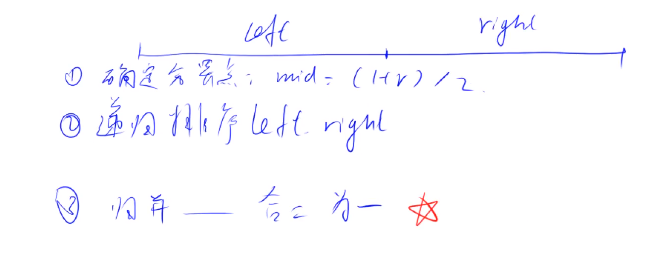 left right
① 确定分界点: mid = (l+r)/2.
② 递归排序 left. right
③ 归并 —— 合二为一 ☆